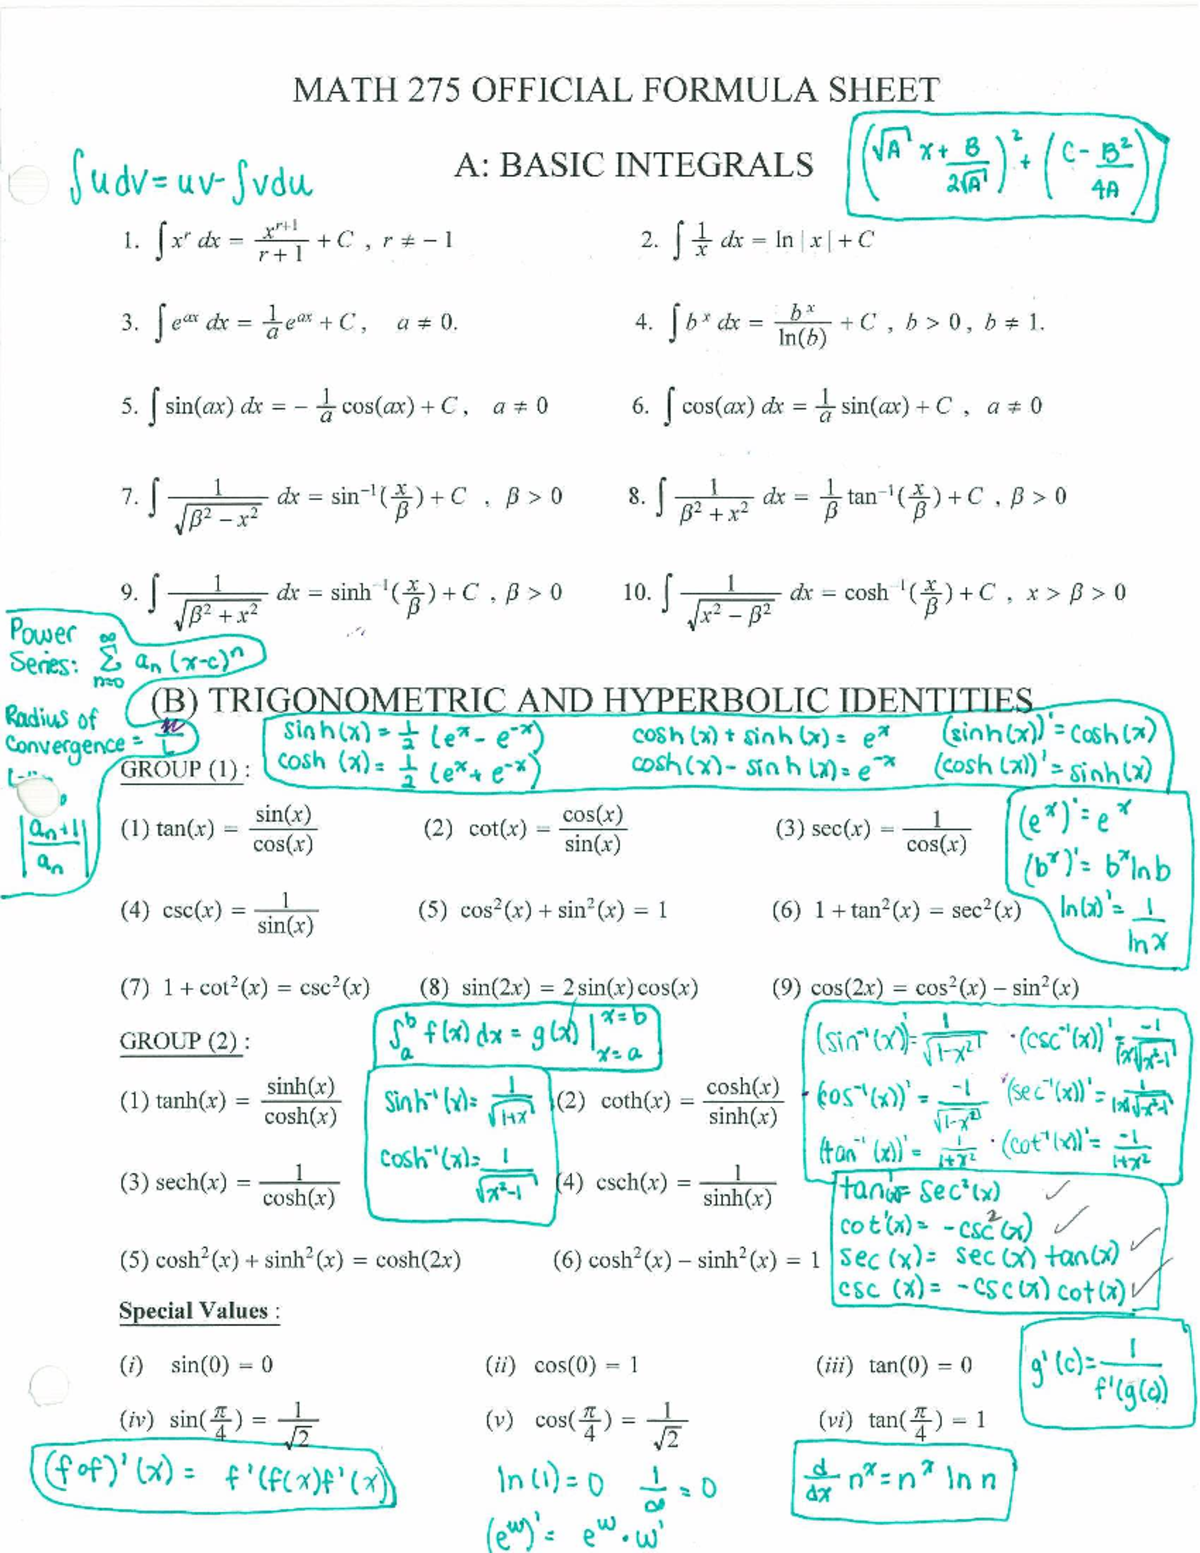 MATH 275 OFFICIAL FORMULA SHEET
A: BASIC INTEGRALS
(√A x + B/(2√A))² + (C - B²/4A)
∫udv = uv - ∫vdu
1. ∫ xʳ dx = xʳ⁺¹/(r + 1) + C , r ≠ - 1
2. ∫ 1/x dx = ln | x | + C
3. ∫ eᵃˣ dx = 1/a eᵃˣ + C , a ≠ 0.
4. ∫ bˣ dx = bˣ/ln(b) + C , b > 0, b ≠ 1.
5. ∫ sin(ax) dx = - 1/a cos(ax) + C , a ≠ 0
6. ∫ cos(ax) dx = 1/a sin(ax) + C , a ≠ 0
7. ∫ 1/√(β² - x²) dx = sin⁻¹(x/β) + C , β > 0
8. ∫ 1/(β² + x²) dx = 1/β tan⁻¹(x/β) + C , β > 0
9. ∫ 1/√(β² + x²) dx = sinh⁻¹(x/β) + C , β > 0
10. ∫ 1/√(x² - β²) dx = cosh⁻¹(x/β) + C , x > β > 0
Power
Series: ∞ Σ n=0 aₙ (x-c)ⁿ
(B) TRIGONOMETRIC AND HYPERBOLIC IDENTITIES
Radius of
Convergence =
|aₙ+1 / aₙ|
sinh(x) = 1/2 (eˣ - e⁻ˣ)
cosh(x) + sinh(x) = eˣ
(sinh(x))' = cosh(x)
cosh (x) = 1/2 (eˣ + e⁻ˣ)
cosh(x) - sinh(x) = e⁻ˣ
(cosh(x))' = sinh(x)
GROUP (1) :
(1) tan(x) = sin(x)/cos(x)
(2) cot(x) = cos(x)/sin(x)
(3) sec(x) = 1/cos(x)
(eˣ)' = eˣ
(bˣ)' = bˣ ln b
ln(x)' = 1/ln x
(4) csc(x) = 1/sin(x)
(5) cos²(x) + sin²(x) = 1
(6) 1 + tan²(x) = sec²(x)
(7) 1 + cot²(x) = csc²(x)
(8) sin(2x) = 2 sin(x) cos(x)
(9) cos(2x) = cos²(x) - sin²(x)
GROUP (2) :
∫ₐᵇ f(x) dx = g(x) | x=b x=a
(sin⁻¹(x))' = 1/√(1-x²)
· (csc⁻¹(x))' = -1/|x|√(x²-1)
· (cos⁻¹(x))' = -1/√(1-x²)
· (sec⁻¹(x))' = 1/|x|√(x²-1)
(tan⁻¹(x))' = 1/(1+x²)
· (cot⁻¹(x))' = -1/(1+x²)
(1) tanh(x) = sinh(x)/cosh(x)
sinh⁻¹(x) = 1/√(1+x)
(2) coth(x) = cosh(x)/sinh(x)
(3) sech(x) = 1/cosh(x)
cosh⁻¹(x) = 1/√(x²-1)
(4) csch(x) = 1/sinh(x)
tan'(x) = sec²(x) ✓
cot'(x) = -csc²(x) ✓
sec (x) = sec(x) tan(x) ✓
csc (x) = -csc(x) cot(x) ✓
(5) cosh²(x) + sinh²(x) = cosh(2x)
(6) cosh²(x) - sinh²(x) = 1
Special Values :
(i) sin(0) = 0
(ii) cos(0) = 1
(iii) tan(0) = 0
g'(c) = 1/f'(g(c))
(iv) sin(π/4) = 1/√2
(v) cos(π/4) = 1/√2
(vi) tan(π/4) = 1
(f of)'(x) = f'(f(x)f'(x)
ln(1) = 0 1/∞ = 0
d/dx nˣ = nˣ ln n
(eʷ)' = eʷ · w'